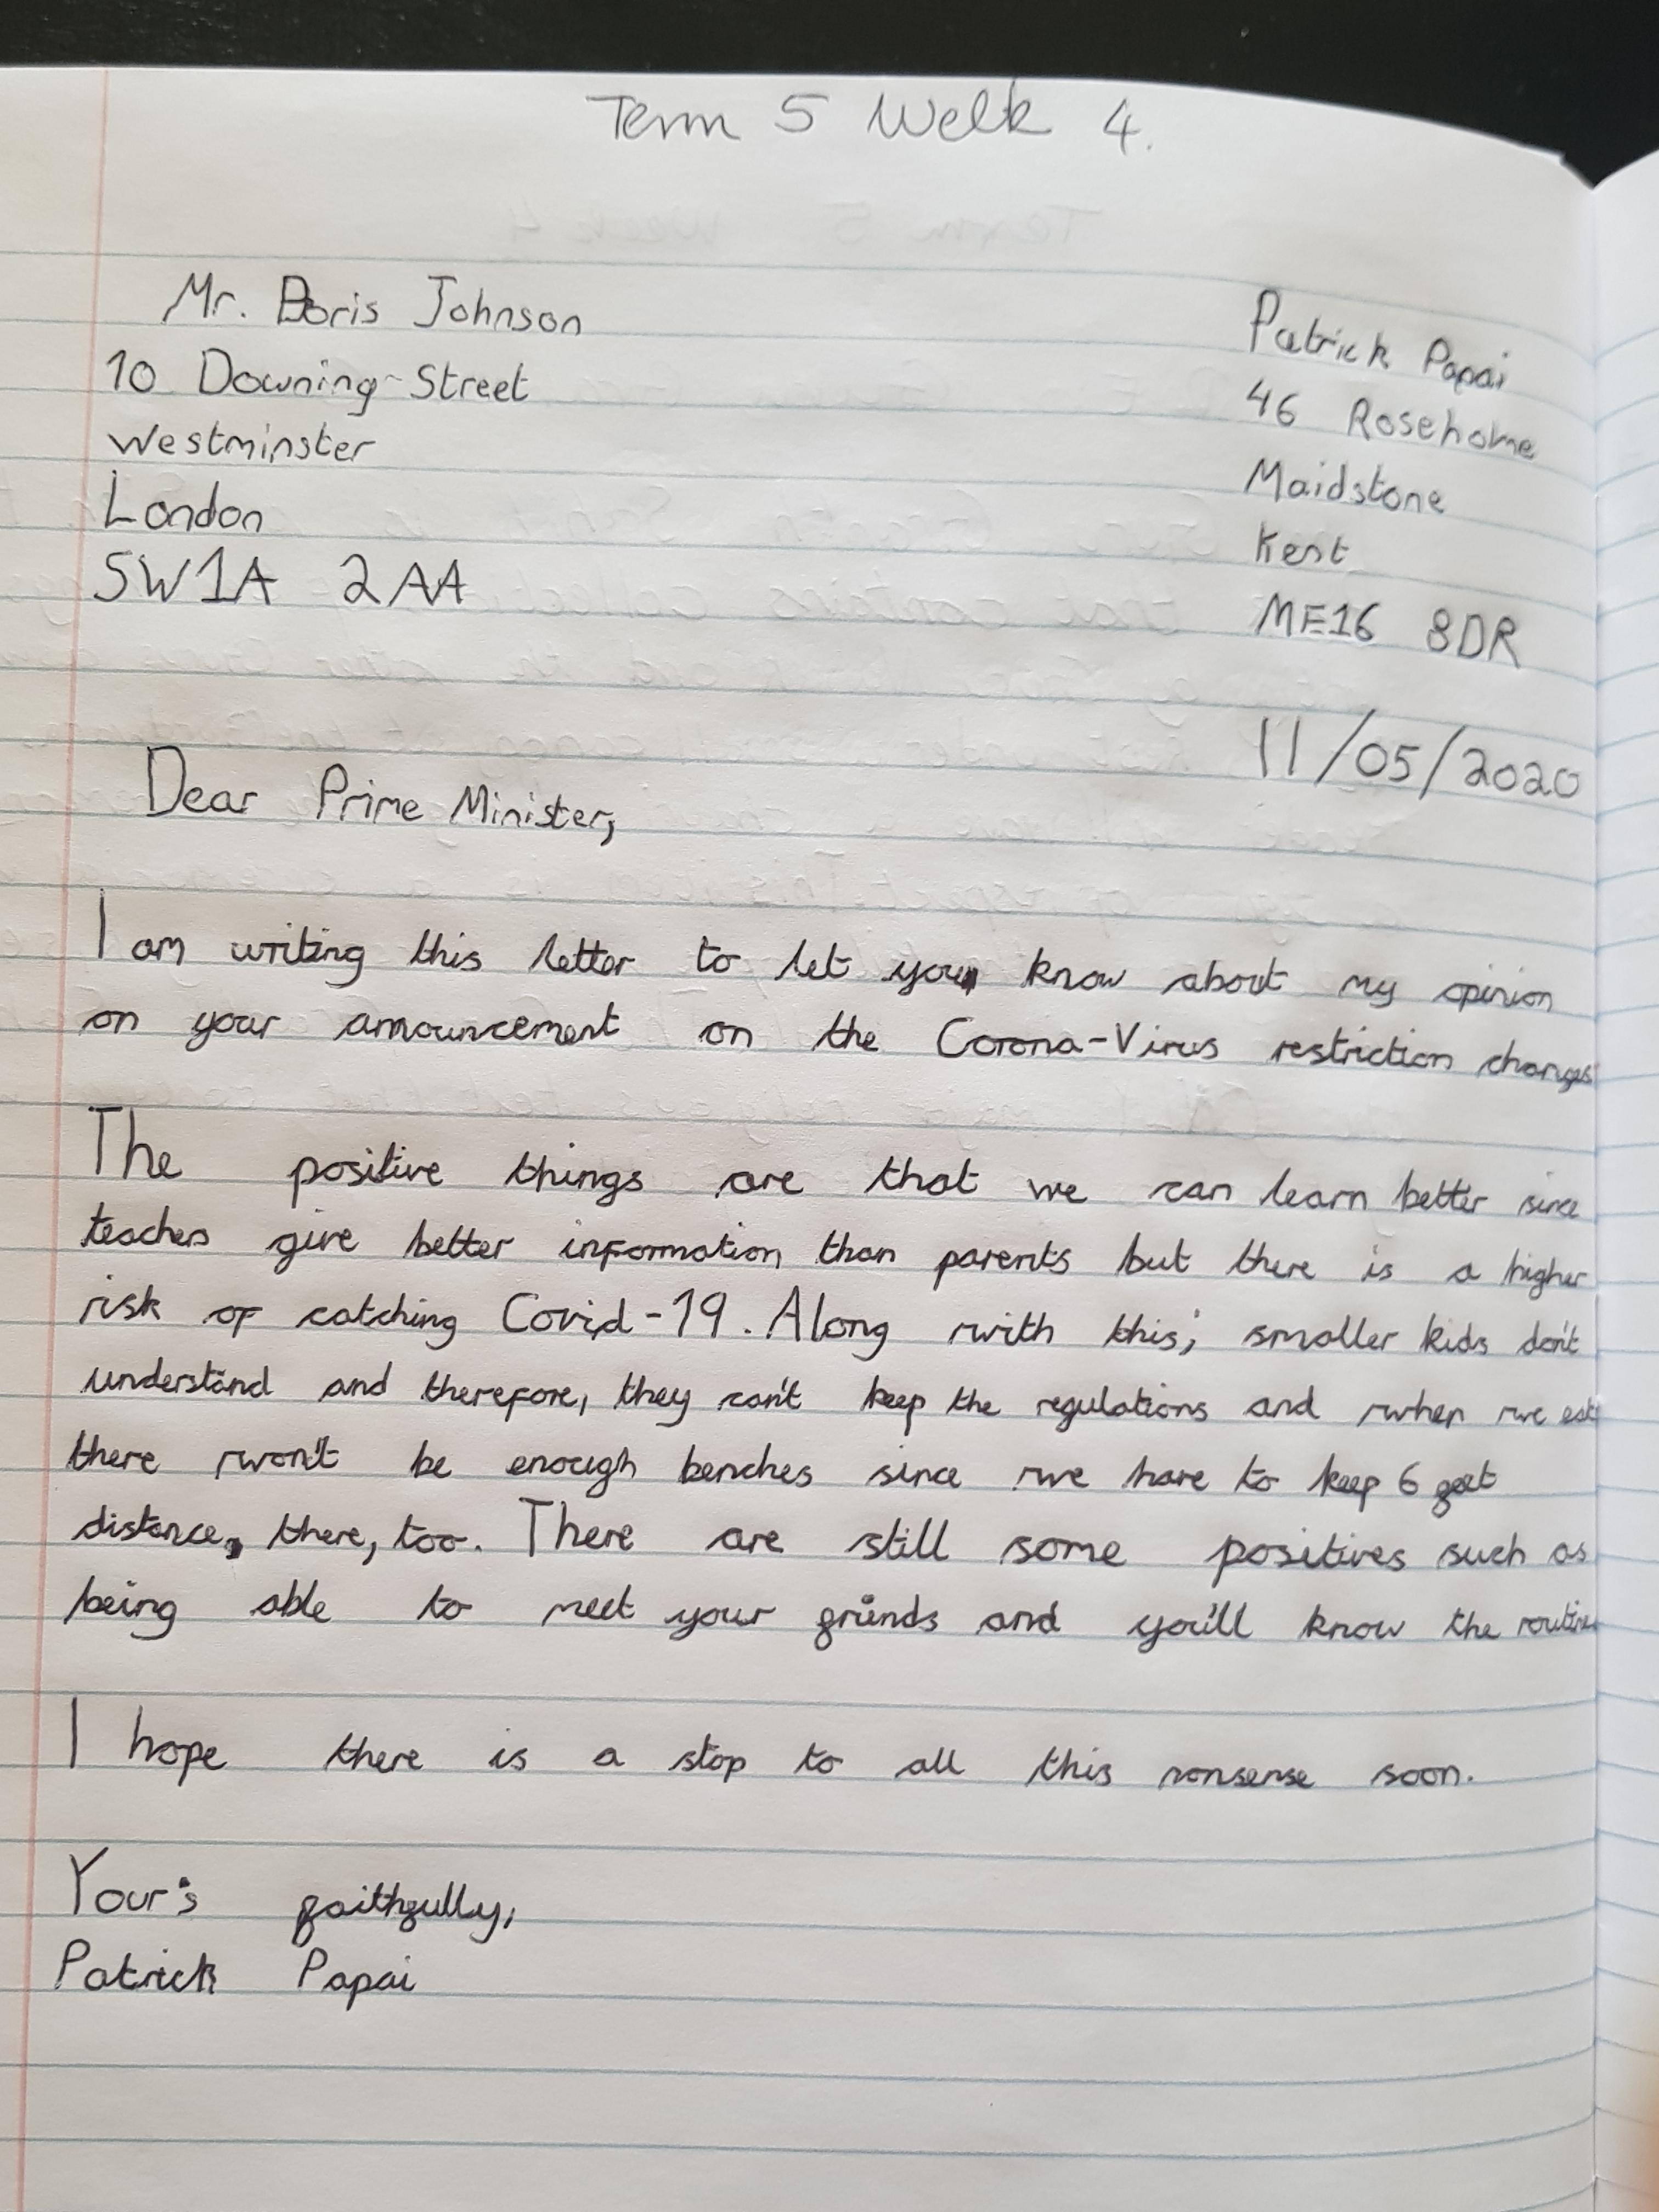 Term 5 Week 4.
Mr. Boris Johnson
10 Downing-Street
Westminster
London
SW1A 2AA
Patrick Papai
46 Roseholme
Maidstone
Kent
ME16 8DR
11/05/2020
Dear Prime Minister,
I am writing this letter to let you know about my opinion
on your announcement on the Corona-Virus restriction changes
The positive things are that we can learn better since
teachers give better information than parents but there is a higher
risk of catching Covid-19. Along with this, smaller kids don't
understand and therefore, they can't keep the regulations and when we eat
there won't be enough benches since we have to keep 6 feet
distance, there, too. There are still some positives such as
being able to meet your friends and you'll know the routine
I hope there is a stop to all this nonsense soon.
Your's faithfully,
Patrick Papai